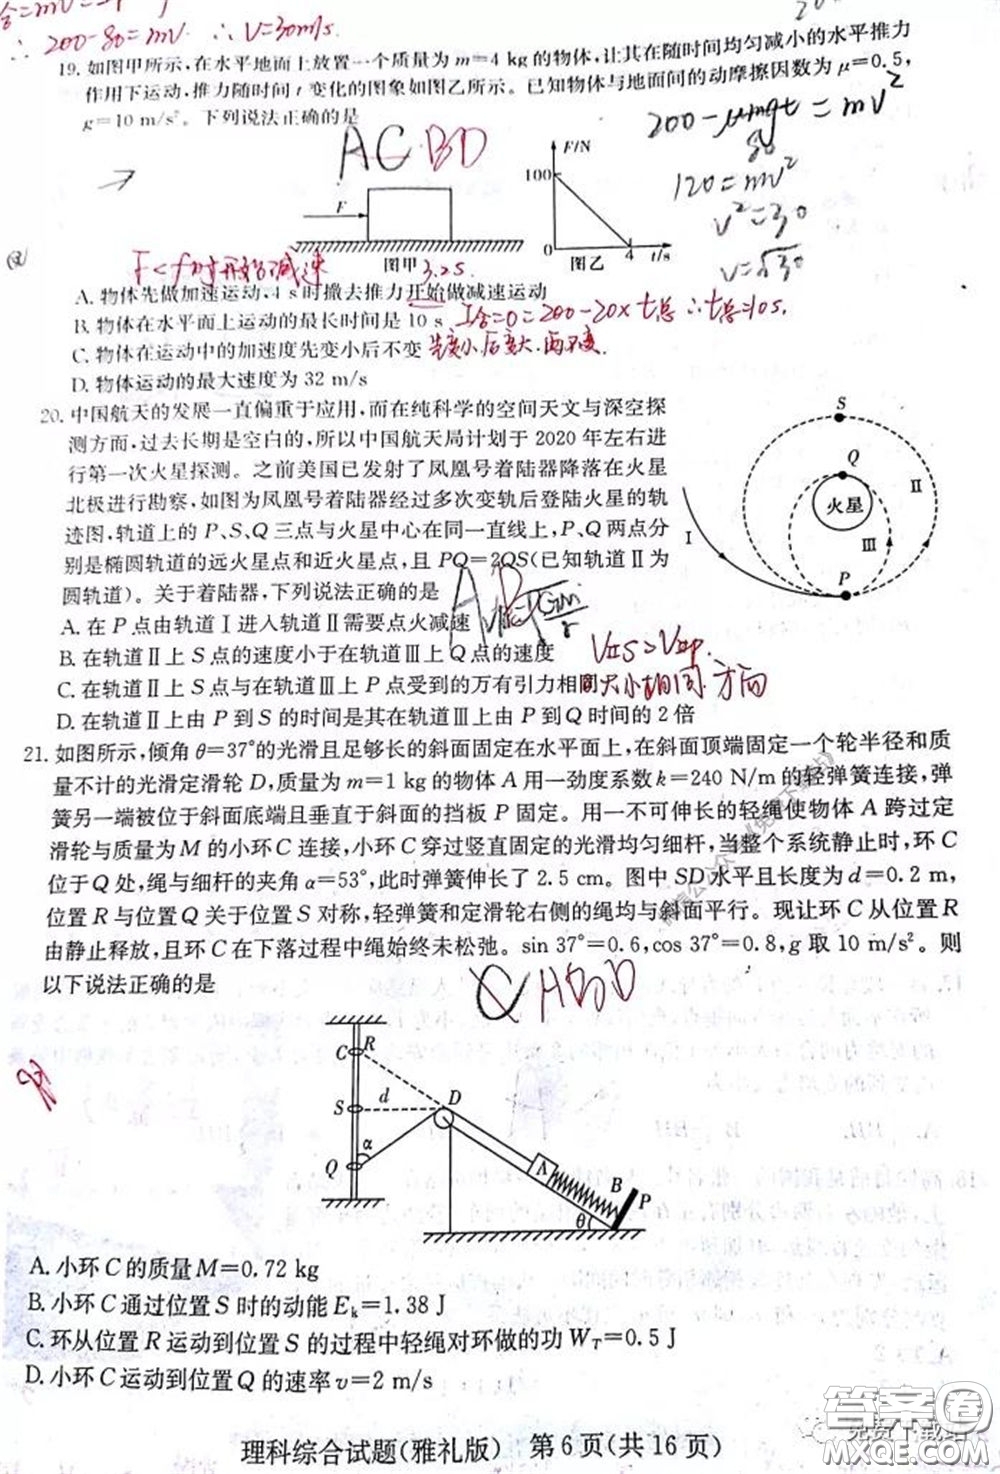 ∴ 200-80=mv ∴ v=30m/s.
19. 如图甲所示,在水平地面上放置一个质量为 m=4 kg 的物体,让其在随时间均匀减小的水平推力
作用下运动,推力随时间 t 变化的图象如图乙所示。已知物体与地面间的动摩擦因数为 μ=0.5,
g=10 m/s²。下列说法正确的是
200-μmgt=mv²
80
120=mv²
v²=30
v=√30
AC BD
F
图甲
F/N
100
4
t/s
图乙
F<f时开始减速
3.2s
A. 物体先做加速运动,4 s 时撤去推力开始做减速运动
B. 物体在水平面上运动的最长时间是 10 s
I合=0=200-20×t总 ∴t总=10s.
C. 物体在运动中的加速度先变小后不变
先变小后变大.再不变.
D. 物体运动的最大速度为 32 m/s
20. 中国航天的发展一直偏重于应用,而在纯科学的空间天文与深空探
测方面,过去长期是空白的,所以中国航天局计划于 2020 年左右进
行第一次火星探测。之前美国已发射了凤凰号着陆器降落在火星
北极进行勘察,如图为凤凰号着陆器经过多次变轨后登陆火星的轨
迹图,轨道上的 P、S、Q 三点与火星中心在同一直线上,P、Q 两点分
别是椭圆轨道的远火星点和近火星点,且 PQ=2QS(已知轨道Ⅱ为
圆轨道)。关于着陆器,下列说法正确的是
S
Q
火星
Ⅱ
Ⅰ
Ⅲ
P
A. 在 P 点由轨道Ⅰ进入轨道Ⅱ需要点火减速
B. 在轨道Ⅱ上 S 点的速度小于在轨道Ⅲ上 Q 点的速度
C. 在轨道Ⅱ上 S 点与在轨道Ⅲ上 P 点受到的万有引力相同
大小相同.方向
D. 在轨道Ⅱ上由 P 到 S 的时间是其在轨道Ⅲ上由 P 到 Q 时间的 2 倍
21. 如图所示,倾角 θ=37°的光滑且足够长的斜面固定在水平面上,在斜面顶端固定一个轮半径和质
量不计的光滑定滑轮 D,质量为 m=1 kg 的物体 A 用一劲度系数 k=240 N/m 的轻弹簧连接,弹
簧另一端被位于斜面底端且垂直于斜面的挡板 P 固定。用一不可伸长的轻绳使物体 A 跨过定
滑轮与质量为 M 的小环 C 连接,小环 C 穿过竖直固定的光滑均匀细杆,当整个系统静止时,环 C
位于 Q 处,绳与细杆的夹角 α=53°,此时弹簧伸长了 2.5 cm。图中 SD 水平且长度为 d=0.2 m,
位置 R 与位置 Q 关于位置 S 对称,轻弹簧和定滑轮右侧的绳均与斜面平行。现让环 C 从位置 R
由静止释放,且环 C 在下落过程中绳始终未松弛。sin 37°=0.6,cos 37°=0.8,g 取 10 m/s²。则
以下说法正确的是
C ABD
C R
S d D
α
Q
A
B P
θ
A. 小环 C 的质量 M=0.72 kg
B. 小环 C 通过位置 S 时的动能 Eₖ=1.38 J
C. 环从位置 R 运动到位置 S 的过程中轻绳对环做的功 W_T=0.5 J
D. 小环 C 运动到位置 Q 的速率 v=2 m/s
理科综合试题(雅礼版) 第 6 页(共 16 页)
答案圈
MXQE.COM